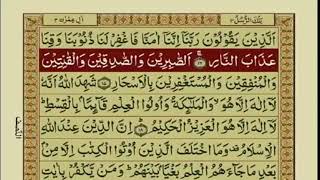 تِلْكَ الرُّسُلُ ٣ اٰلِ عِمْرٰن ٣
اَلَّذِيْنَ يَقُوْلُوْنَ رَبَّنَاۤ اِنَّنَاۤ اٰمَنَّا فَاغْفِرْ لَنَا ذُنُوْبَنَا وَقِنَا
عَذَابَ النَّارِ ﴿١٦﴾ اَلصّٰبِرِيْنَ وَالصّٰدِقِيْنَ وَالْقٰنِتِيْنَ
وَالْمُنْفِقِيْنَ وَالْمُسْتَغْفِرِيْنَ بِالْاَسْحَارِ ﴿١٧﴾ شَهِدَ اللّٰهُ اَنَّهٗ
لَاۤ اِلٰهَ اِلَّا هُوَ وَالْمَلٰٓئِكَةُ وَاُولُوا الْعِلْمِ قَآئِمًاۢ بِالْقِسْطِ
لَاۤ اِلٰهَ اِلَّا هُوَ الْعَزِيْزُ الْحَكِيْمُ ﴿١٨﴾ اِنَّ الدِّيْنَ عِنْدَ اللّٰهِ
الْاِسْلَامُ وَمَا اخْتَلَفَ الَّذِيْنَ اُوْتُوا الْكِتٰبَ اِلَّا مِنْۢ
بَعْدِ مَا جَآءَهُمُ الْعِلْمُ بَغْيًاۢ بَيْنَهُمْ وَمَنْ يَّكْفُرْ بِاٰيٰتِ